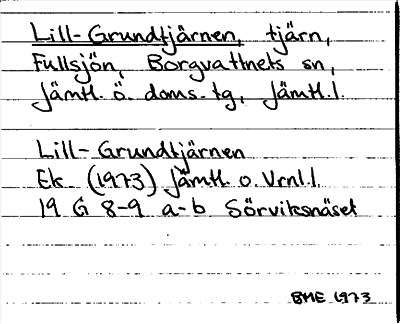 Lill-Grundtjärnen, tjärn,
Fullsjön, Borgvattnets sn,
Jämtl. ö. doms. tg, Jämtl. l.
Lill-Grundtjärnen
Ek. (1973) Jämtl. o. Vrnl l.
19 G 8-9 a-b Sörviksnäset
BME 1973